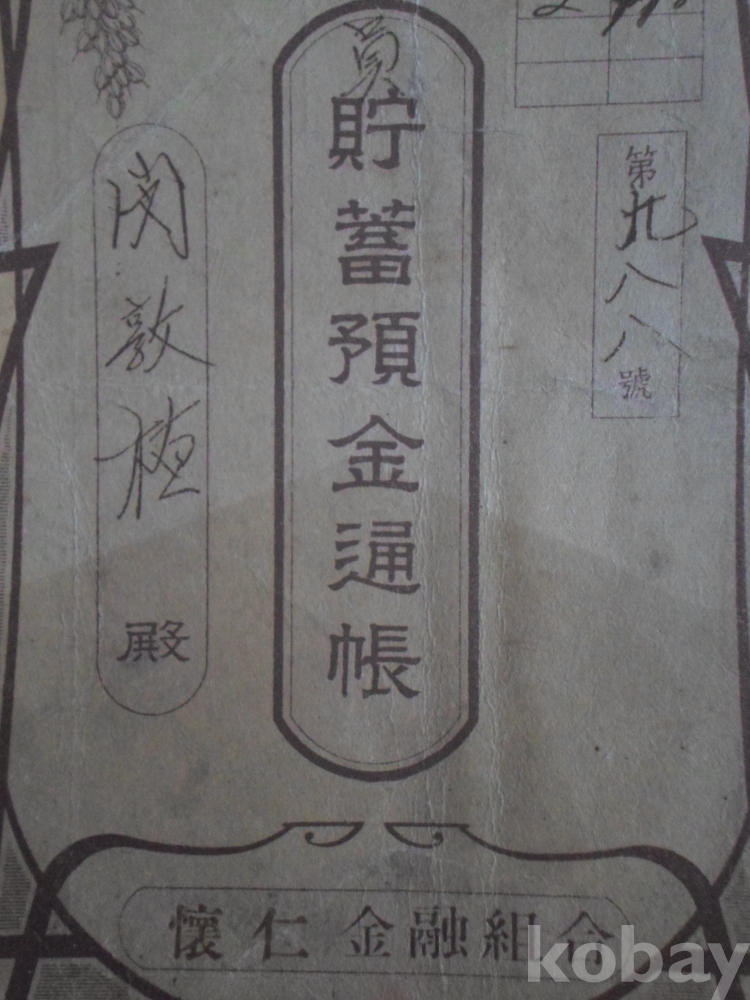 第九八八號
員
貯蓄預金通帳
閔敦植 殿
懷仁 金融組合
kobay